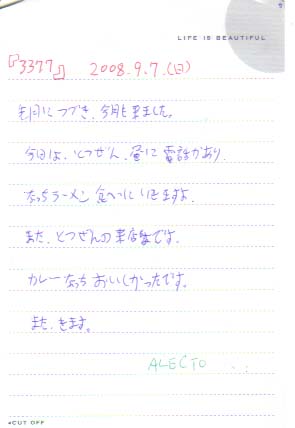 LIFE IS BEAUTIFUL
『3377』 2008.9.7.(日)
先月につづき、今月も来ました。
今日は、とつぜん、昼に電話があり、
なっちラーメン食べにいきますよ
また、とつぜんの来店です。
カレーなっちおいしかったです。
また、きます。
ALECTO
CUT OFF